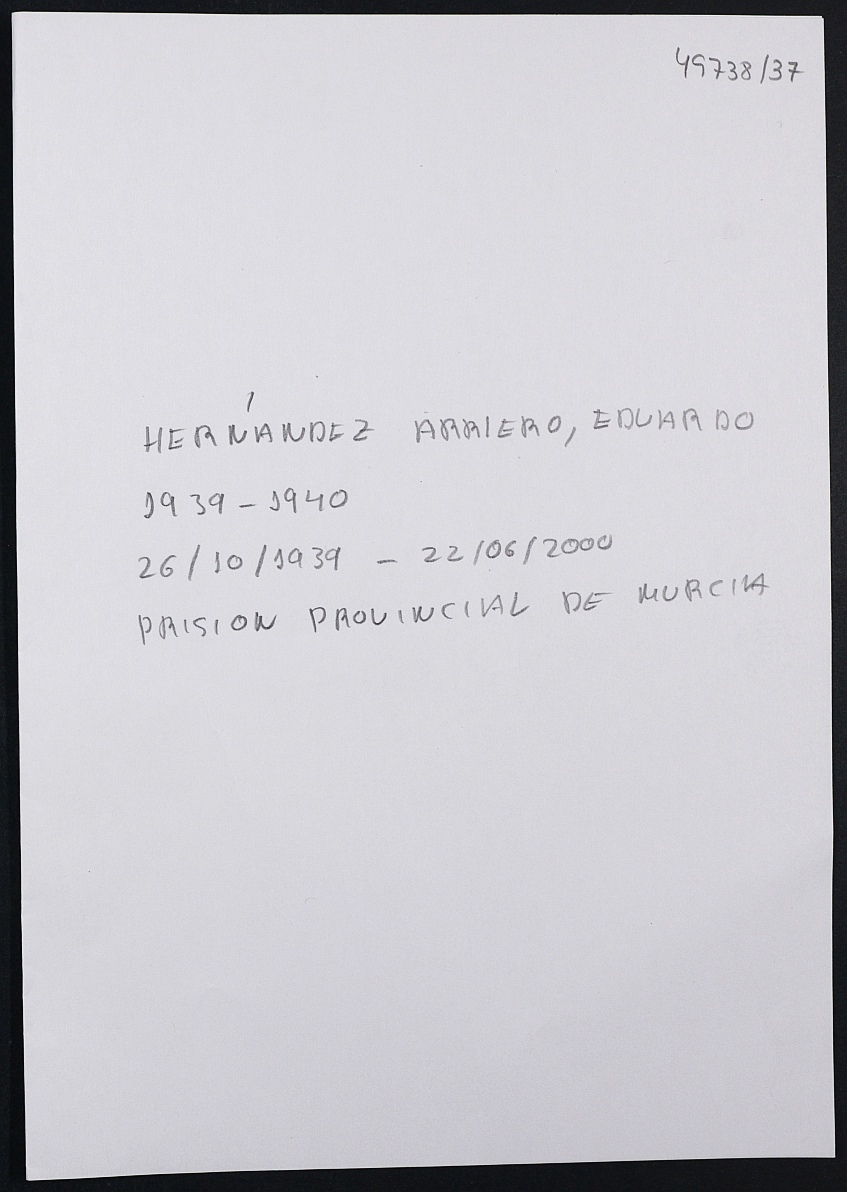 49738/37
HERNÁNDEZ ARRIERO, EDUARDO
1939-1940
26/10/1939 - 22/06/2000
PRISION PROVINCIAL DE MURCIA